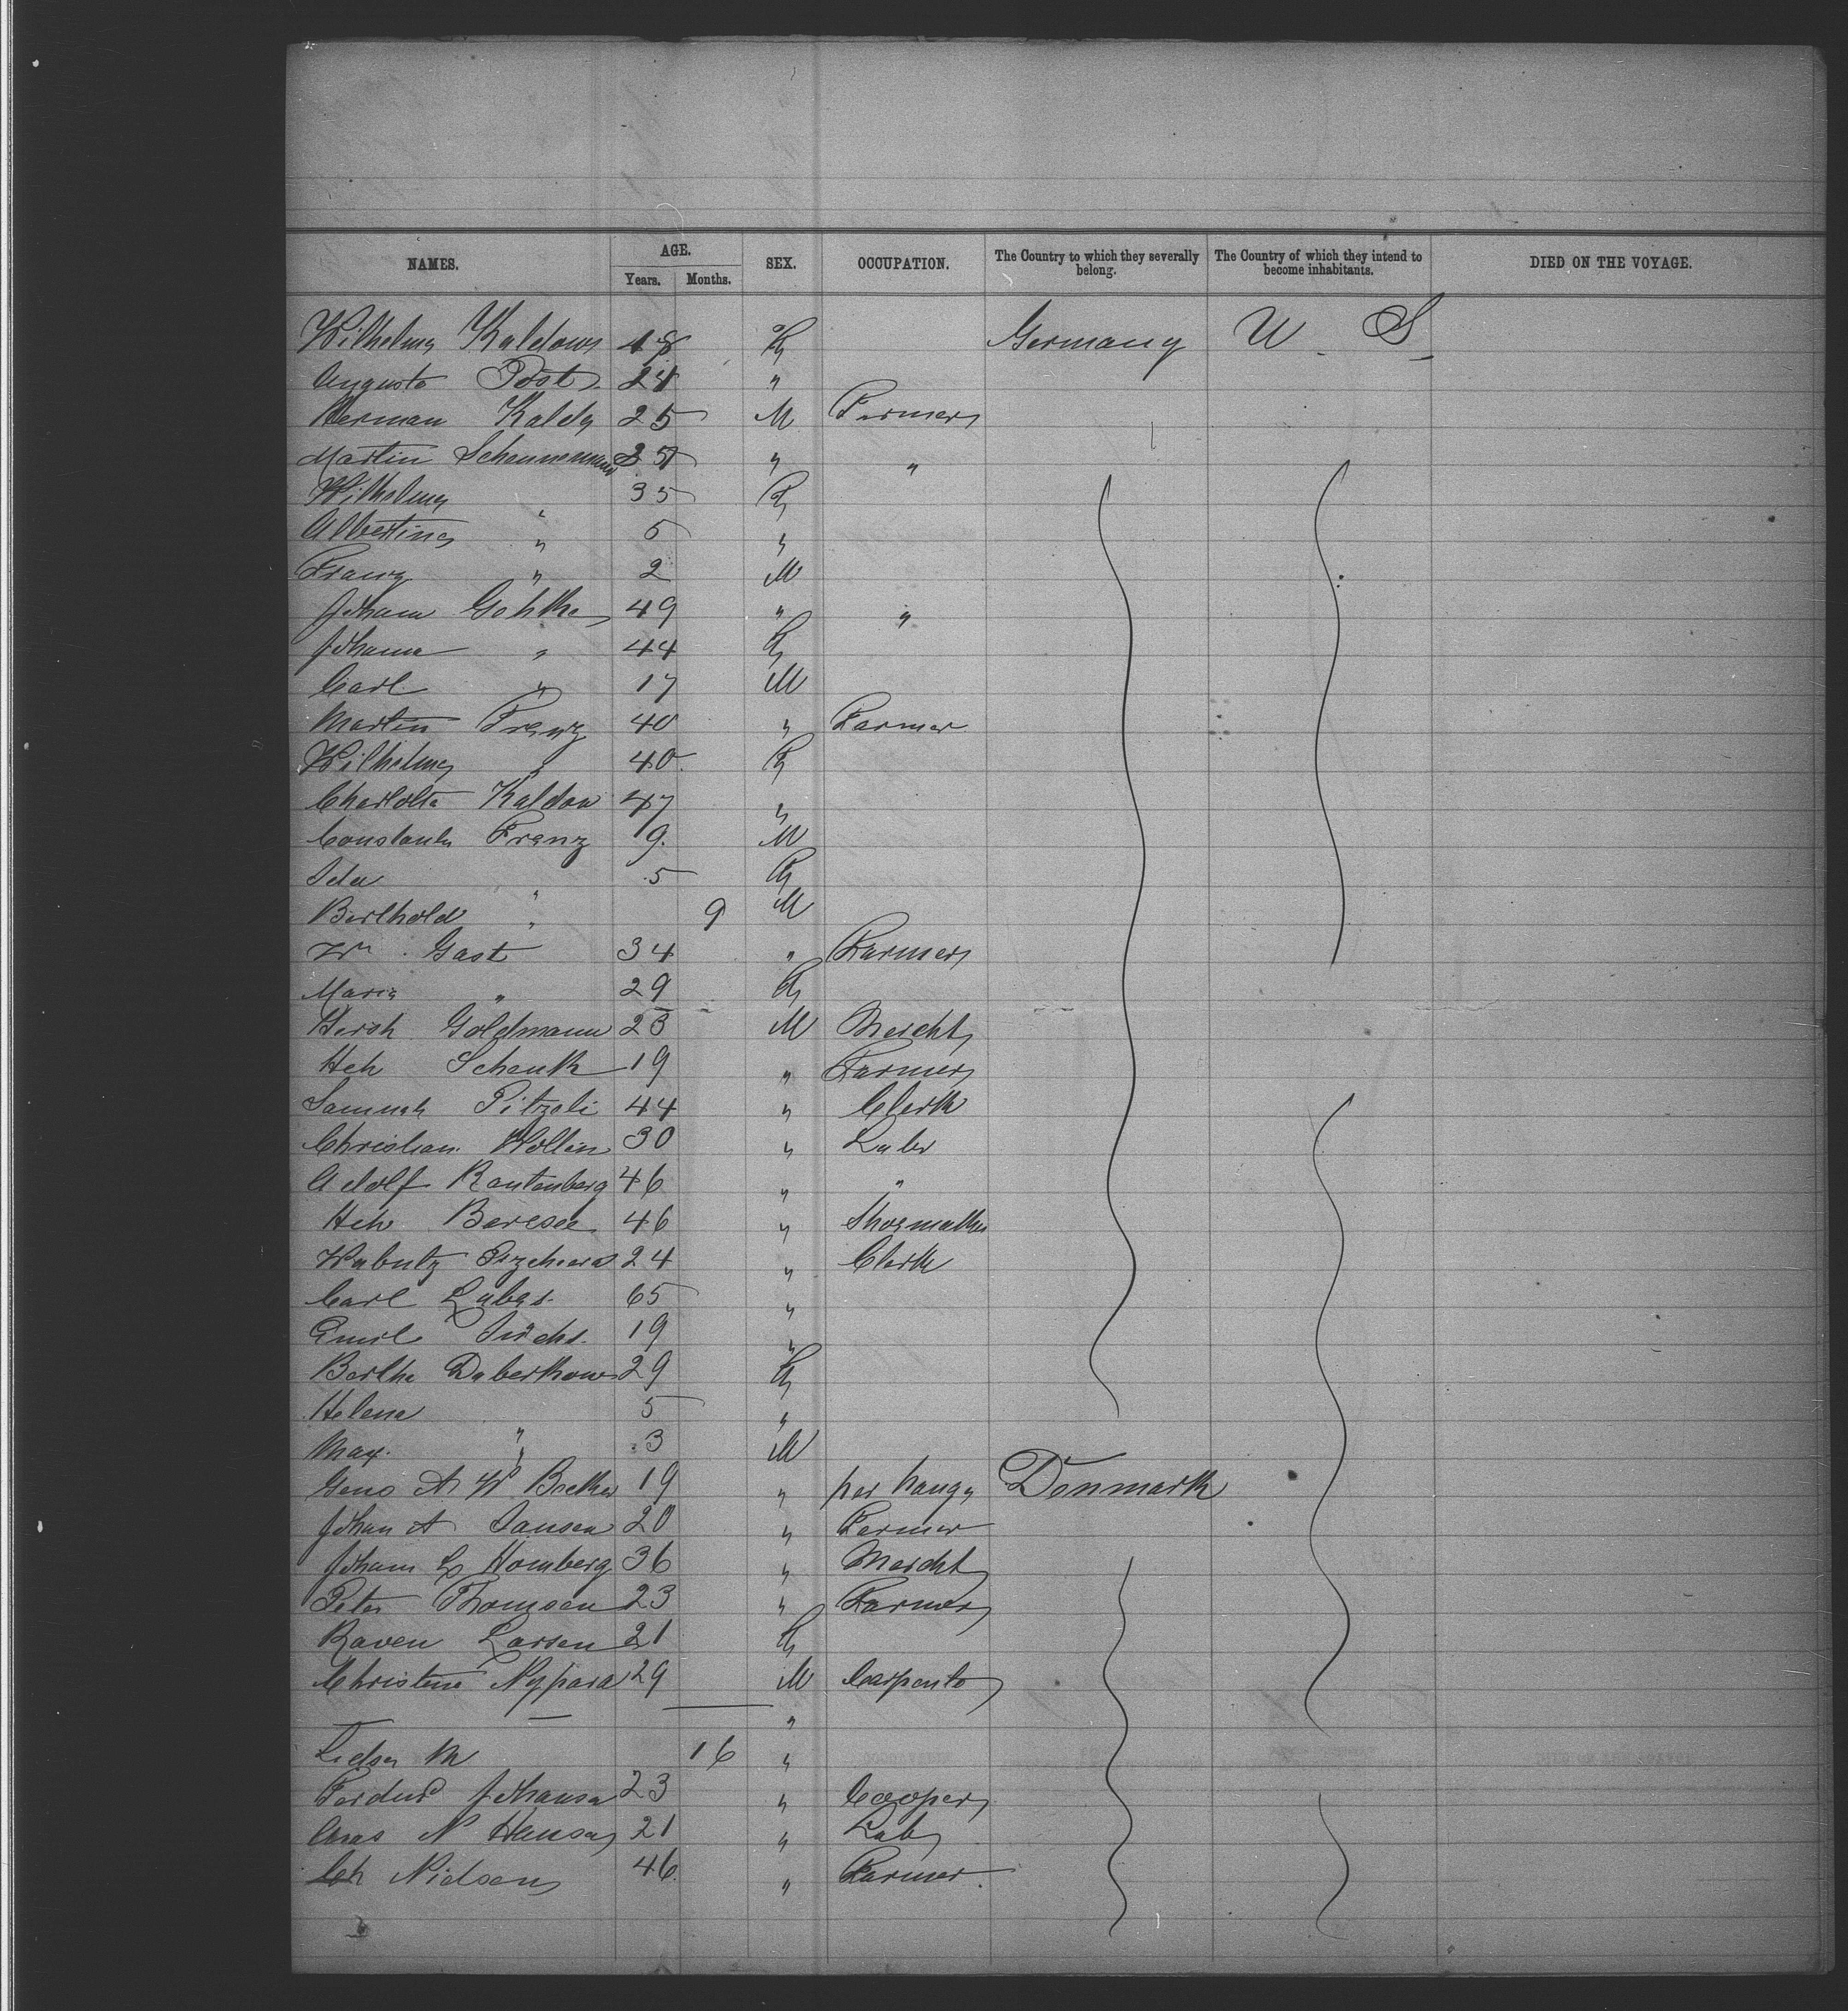 NAMES. AGE. Years. Months. SEX. OCCUPATION. The Country to which they severally belong. The Country of which they intend to become inhabitants. DIED ON THE VOYAGE.
Wilhelmy Kaldows 48 F Germany U. S.
Augusta Post 24 "
Herman Kaldy 25 M Farmer
Martin " "
Wilhelmy " 35 F
Albertine " 5 "
Franz " 2 M
Johann Gohlke 49 " "
Johanna " 44 F
Carl " 17 M
Martin Franz 40 " Farmer
Wilhelmy " 40 F
Charlotte Kaldow 47 "
Constantin Franz 9 M
Ida " 5 F
Berthold " 9 M
Wm Gast 34 " Farmer
Maria " 29 F
Hersh Goldmann 23 M Mercht
Hch Schenk 19 " Farmer
44 " Clerk
Christian 30 " Labr
Adolf Rautenberg 46 " "
Hch 46 " Shoemaker
24 " Clerk
Carl 65 "
Emil 19 "
Bertha Daberkow 29 F
Helene " 5 "
Max " 3 M
A W 19 " Denmark
Johan A Jansen 20 " Farmer
Johann Homberg 36 " Mercht
Peter Thomsen 23 " Farmer
Karen Larsen 21 F
Christine 29 M Carpenter
"
M 16 "
Ferdind 23 " Cooper
N Hansen 21 " Lab
Nielsen 46 " Farmer